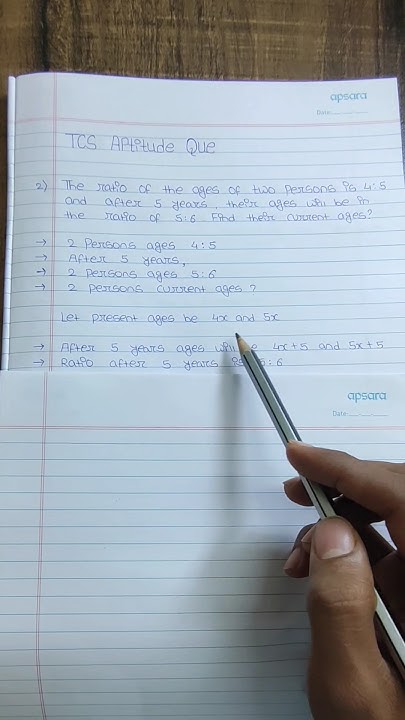 apsara
Date:
TCS Aptitude Que
2) The ratio of the ages of two persons is 4:5
and after 5 years, their ages will be in
the ratio of 5:6 Find their current ages?
→ 2 persons ages 4:5
→ After 5 years,
→ 2 persons ages 5:6
→ 2 persons current ages?
Let present ages be 4x and 5x
→ After 5 years ages 4x+5 and 5x+5
→ Ratio after 5 years :6
apsara
Date: